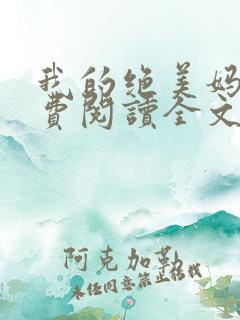 我的绝美妈
费阅读全文
阿克加勒
未经同意禁止转载